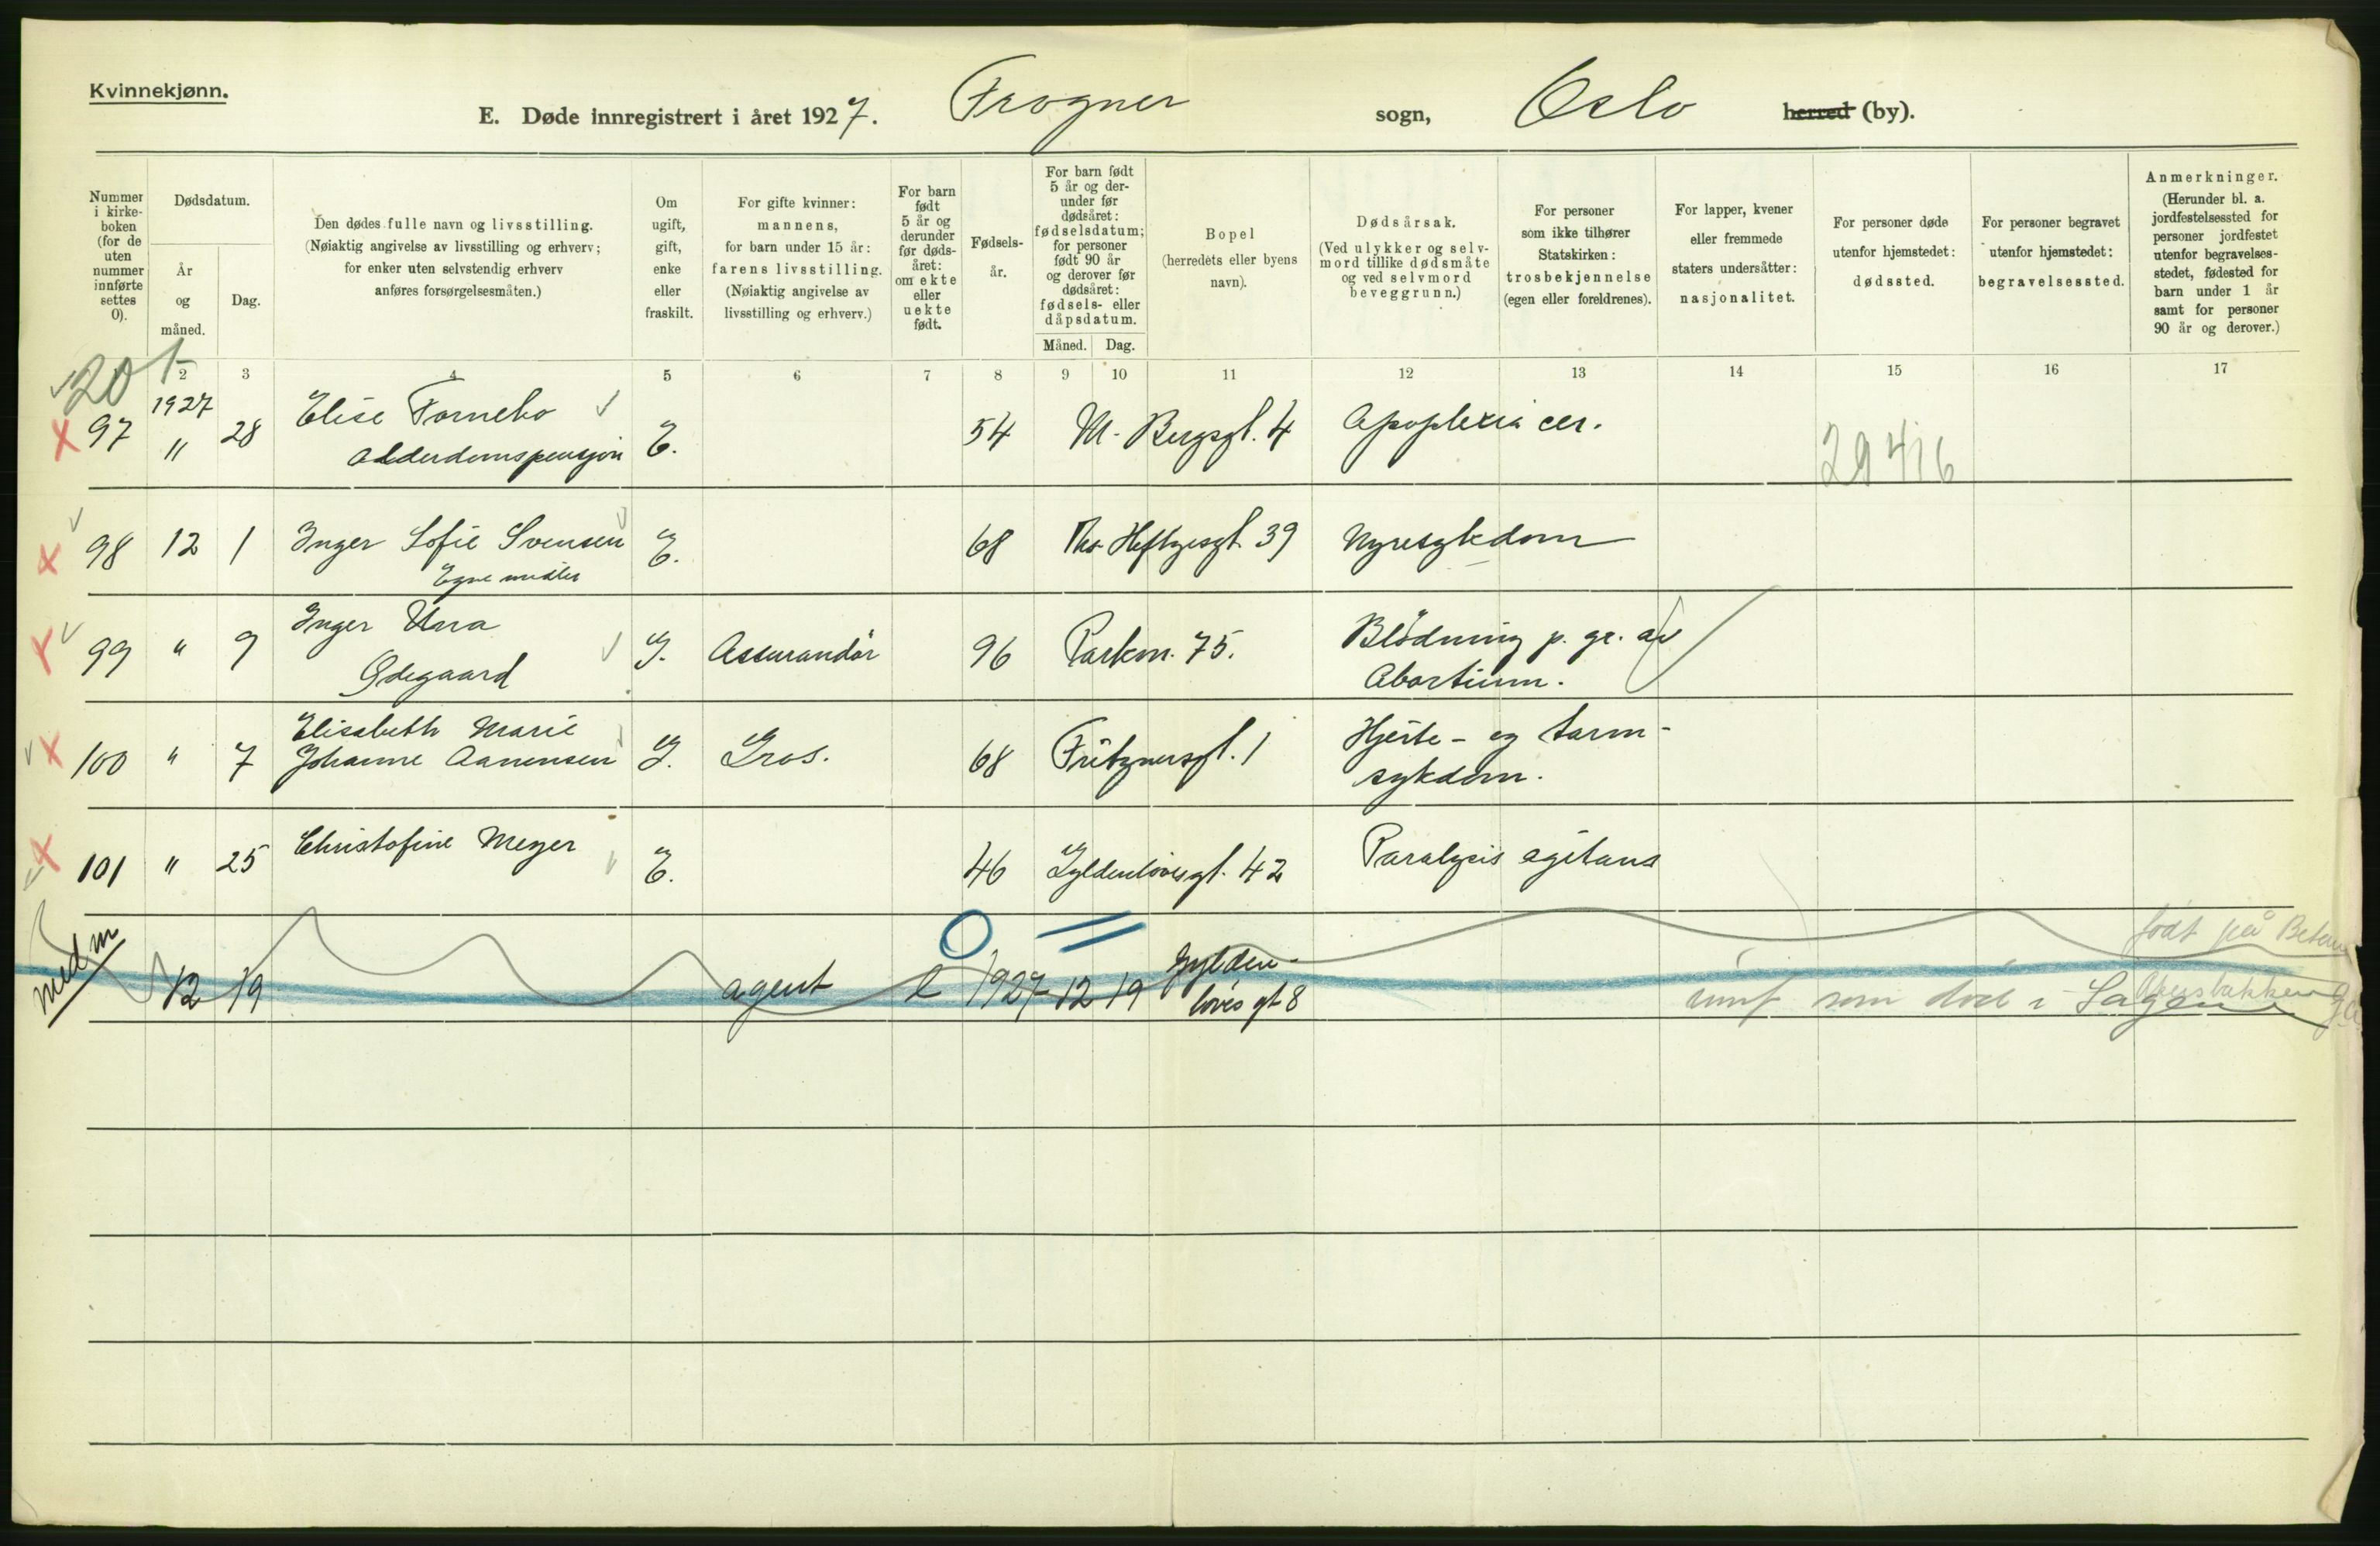 Kvinnekjønn.
E. Døde innregistrert i året 1927. Frogner sogn, Oslo herred (by).
Nummer i kirke-boken (for de uten nummer innførte settes 0).
Dødsdatum.
År og måned.
Dag.
Den dødes fulle navn og livsstilling.
(Nøiaktig angivelse av livsstilling og erhverv;
for enker uten selvstendig erhverv
anføres forsørgelsesmåten.)
Om ugift, gift, enke eller fraskilt.
For gifte kvinner:
mannens,
for barn under 15 år:
farens livsstilling.
(Nøiaktig angivelse av
livsstilling og erhverv.)
For barn født 5 år og derunder før døds-året: om ekte eller uekte født.
Fødsels-år.
For barn født 5 år og der-under før dødsåret: fødselsdatum; for personer født 90 år og derover før dødsåret: fødsels- eller dåpsdatum.
Måned. Dag.
Bopel
(herredets eller byens
navn).
Dødsårsak.
(Ved ulykker og selv-
mord tillike dødsmåte
og ved selvmord
beveggrunn.)
For personer
som ikke tilhører
Statskirken:
trosbekjennelse
(egen eller foreldrenes).
For lapper, kvener
eller fremmede
staters undersåtter:
nasjonalitet.
For personer døde
utenfor hjemstedet:
dødssted.
For personer begravet
utenfor hjemstedet:
begravelsessted.
Anmerkninger.
(Herunder bl. a.
jordfestelsessted for
personer jordfestet
utenfor begravelses-
stedet, fødested for
barn under 1 år
samt for personer
90 år og derover.)
201
2 3 4 5 6 7 8 9 10 11 12 13 14 15 16 17
1927
97 " 28 Elise Fornebo E. 54 M. Bergsgt. 4 Apoplexia cer. 29416
Alderdomspensjon
98 12 1 Inger Sofie Svensen E. 68 Ths. Heftyesgt. 39 Nyresykdom
Egne midler
99 " 9 Inger Unra G. Assurandør 96 Parkv. 75. Blødning p. gr. av
Ødegaard Abortium.
100 " 7 Elisabeth Marie G. Gros. 68 Fritznersgt. 1 Hjerte- og tarm-
Johanne Aanensen sykdom.
101 " 25 Christofine Meyer E. 46 Gyldenløvesgt. 42 Paralysis agitans
med m
12 19 agent e 1927 12 19 Gylden-
løves gt 8
født på
som død i Sagene